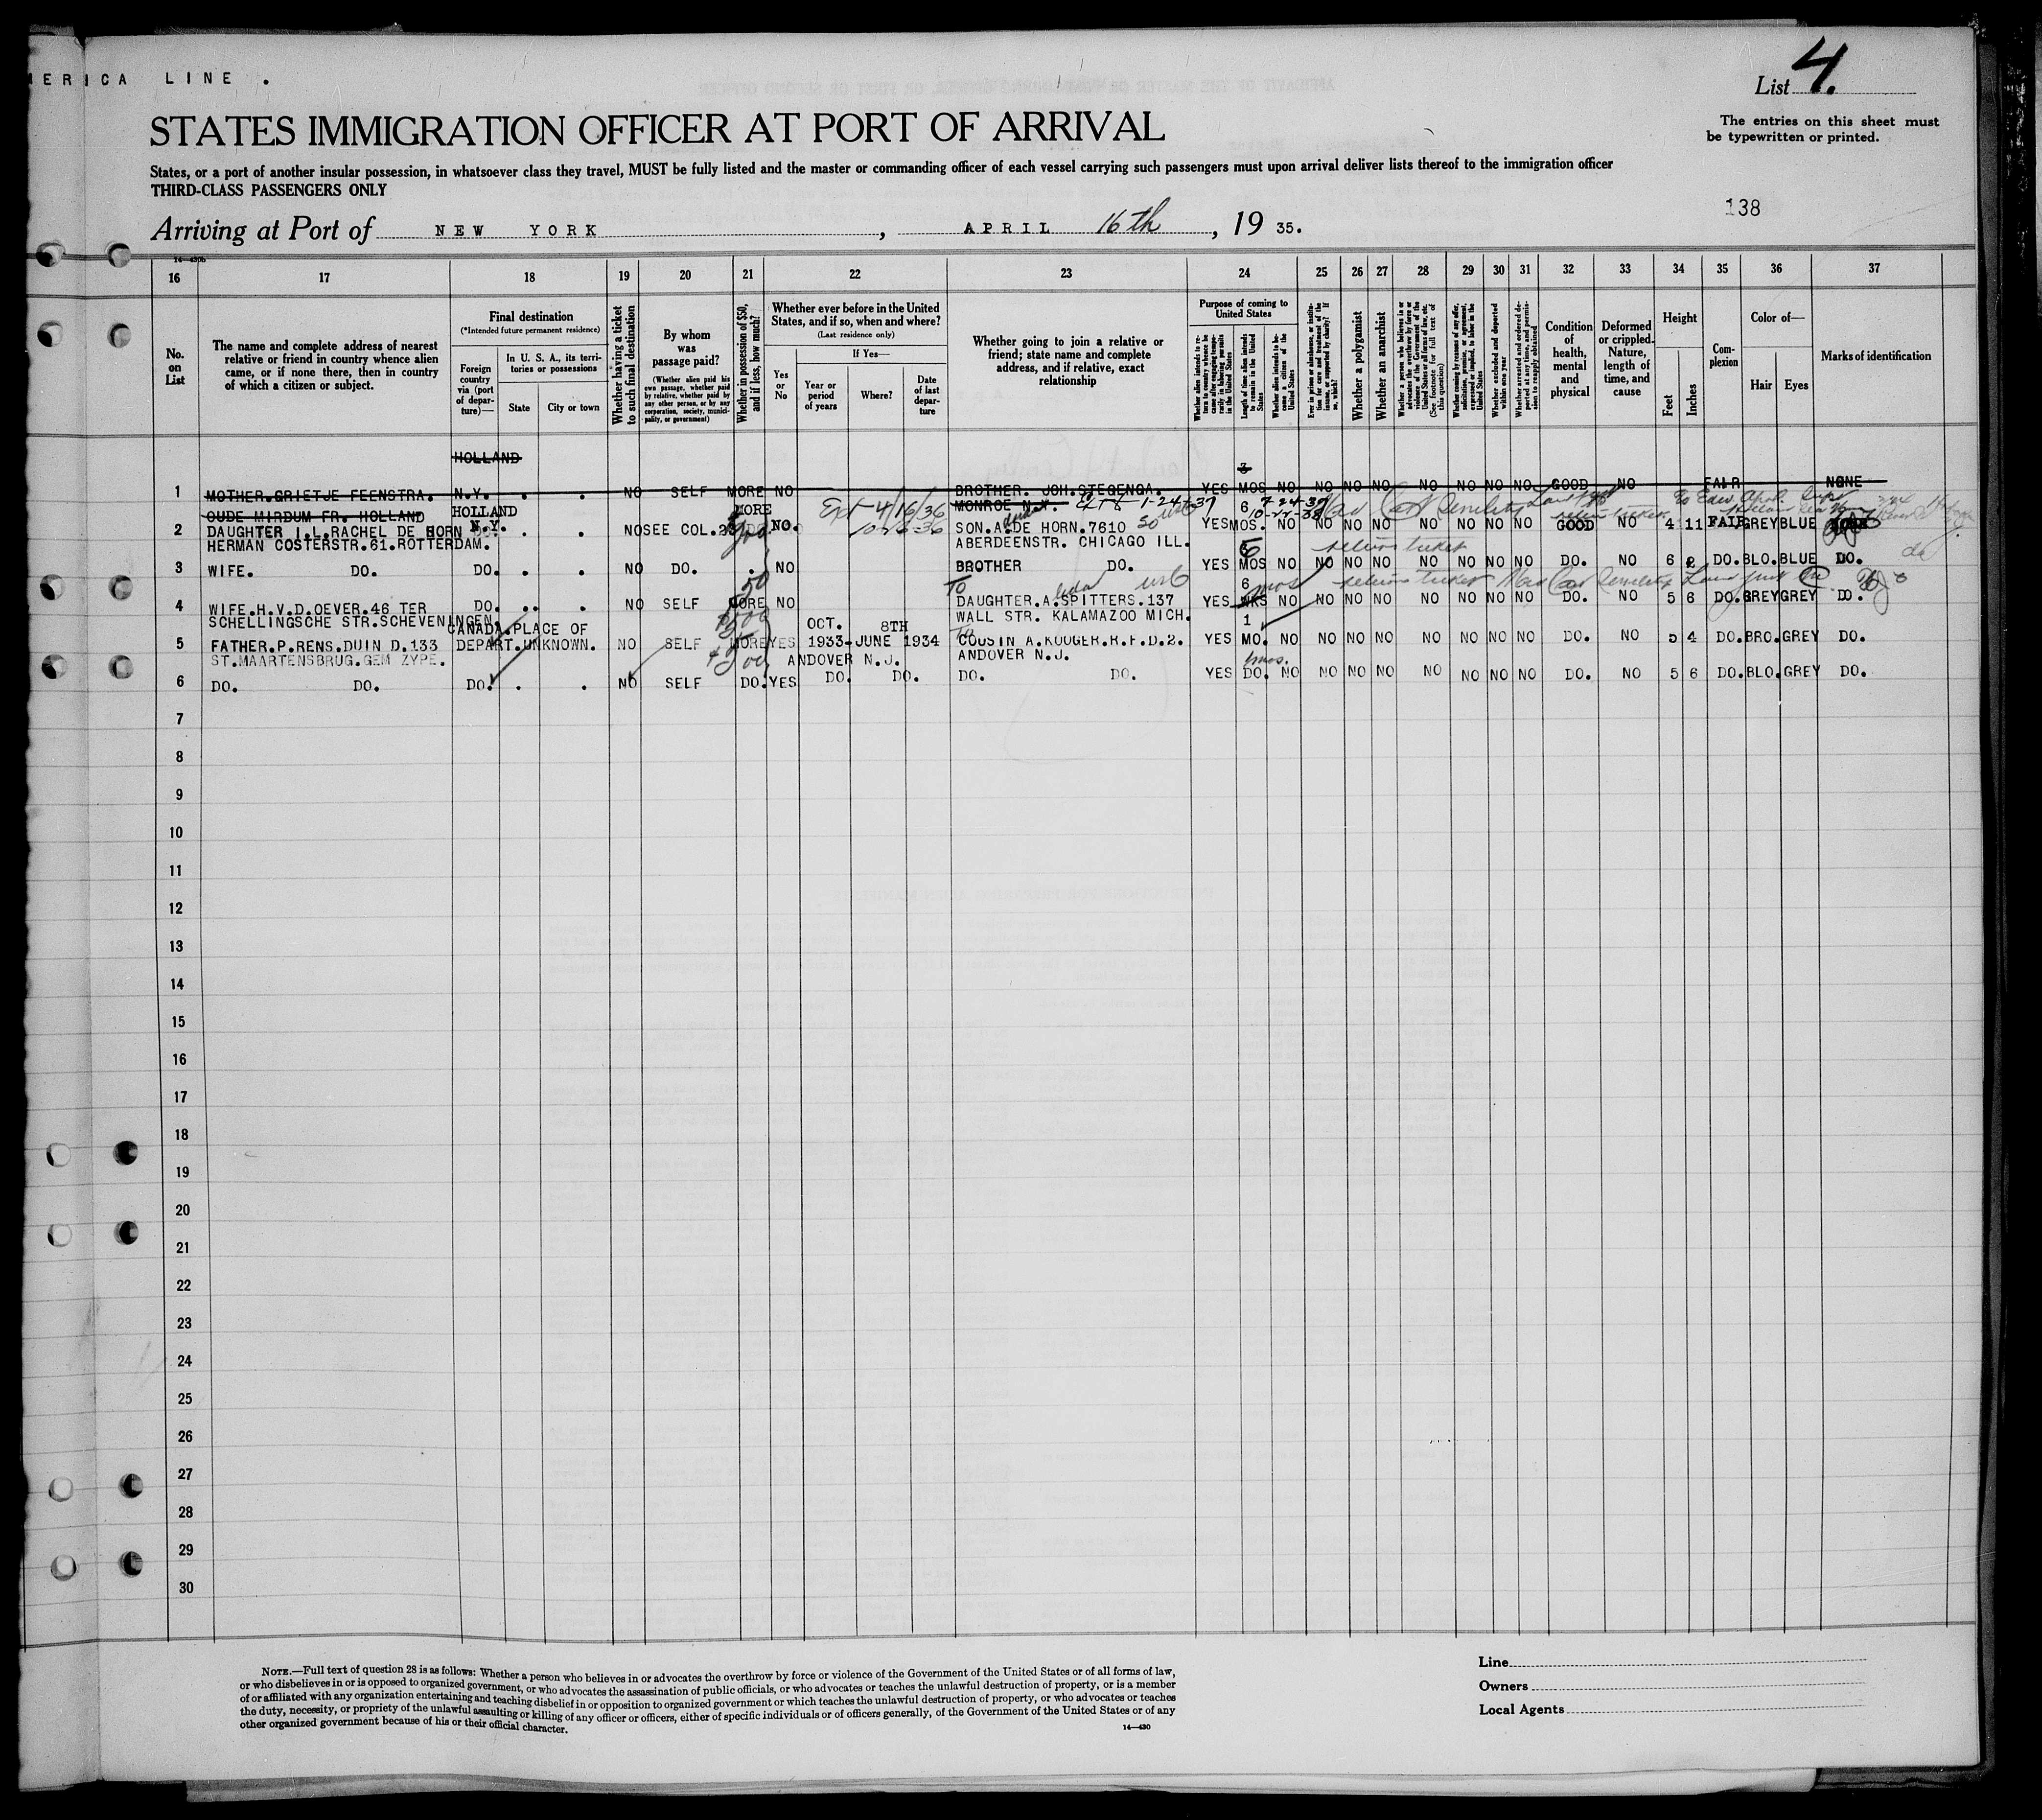 MERICA LINE .
List 4.
STATES IMMIGRATION OFFICER AT PORT OF ARRIVAL
The entries on this sheet must
be typewritten or printed.
States, or a port of another insular possession, in whatsoever class they travel, MUST be fully listed and the master or commanding officer of each vessel carrying such passengers must upon arrival deliver lists thereof to the immigration officer
THIRD-CLASS PASSENGERS ONLY
138
Arriving at Port of NEW YORK, APRIL 16th, 19 35.
14-430b
16 17 18 19 20 21 22 23 24 25 26 27 28 29 30 31 32 33 34 35 36 37
No. on List
The name and complete address of nearest relative or friend in country whence alien came, or if none there, then in country of which a citizen or subject.
Final destination
(*Intended future permanent residence)
Foreign country via (port of departure)—
In U. S. A., its territories or possessions
State
City or town
Whether having a ticket to such final destination
By whom was passage paid?
(Whether alien paid his own passage, whether paid by relative, whether paid by any other person, or by any corporation, society, municipality, or government)
Whether in possession of $50, and if less, how much?
Whether ever before in the United States, and if so, when and where?
(Last residence only)
Yes or No
If Yes—
Year or period of years
Where?
Date of last departure
Whether going to join a relative or friend; state name and complete address, and if relative, exact relationship
Purpose of coming to United States
Length of time alien intends to remain in the United States
Whether alien intends to become a citizen of the United States
Whether a polygamist
Whether an anarchist
Whether excluded and deported within one year
Condition of health, mental and physical
Deformed or crippled. Nature, length of time, and cause
Height
Feet
Inches
Complexion
Color of—
Hair
Eyes
Marks of identification
HOLLAND
3
1 MOTHER.GRIETJE FEENSTRA. N.Y. . . NO SELF MORE NO BROTHER. JOH.STEGENGA. YES MOS NO NO NO NO NO NO NO NO GOOD NO FAIR NONE
OUDE MIRDUM FR. HOLLAND HOLLAND MORE Ext 4/16/36 MONROE N.Y. 1-24-37 6
2 DAUGHTER I.L.RACHEL DE HORN N.Y. . . NO SEE COL.23 NO. 10-16-36 SON.A.DE HORN.7610 YES MOS. NO NO NO NO NO NO NO NO GOOD NO 4 11 FAIR GREY BLUE
HERMAN COSTERSTR.61.ROTTERDAM. ABERDEENSTR. CHICAGO ILL. 6 return ticket
3 WIFE. DO. DO. . . NO DO. . NO BROTHER DO. YES MOS NO NO NO NO NO NO NO NO DO. NO 6 2 DO. BLO. BLUE DO.
50 To 6 mos return ticket
4 WIFE.H.V.D.OEVER.46 TER DO. .. . NO SELF MORE NO DAUGHTER.A.SPITTERS.137 YES WKS NO NO NO NO NO NO NO NO DO. NO 5 6 DO. GREY GREY DO.
SCHELLINGSCHE STR.SCHEVENINGEN. CANADA.PLACE OF OCT. 8TH WALL STR. KALAMAZOO MICH. 1
5 FATHER.P.RENS.DUIN D.133 DEPART.UNKNOWN. NO SELF MORE YES 1933-JUNE 1934 COUSIN A.KOOGER.R.F.D.2. YES MO. NO NO NO NO NO NO NO NO DO. NO 5 4 DO. BRO. GREY DO.
ST.MAARTENSBRUG.GEM ZYPE. ANDOVER N.J. ANDOVER N.J.
6 DO. DO. DO. . . NO SELF DO. YES DO. DO. DO. DO. YES DO. NO NO NO NO NO NO NO NO DO. NO 5 6 DO. BLO. GREY DO.
7
8
9
10
11
12
13
14
15
16
17
18
19
20
21
22
23
24
25
26
27
28
29
30
NOTE.—Full text of question 28 is as follows: Whether a person who believes in or advocates the overthrow by force or violence of the Government of the United States or of all forms of law,
or who disbelieves in or is opposed to organized government, or who advocates the assassination of public officials, or who advocates or teaches the unlawful destruction of property, or is a member
of or affiliated with any organization entertaining and teaching disbelief in or opposition to organized government or which teaches the unlawful destruction of property, or who advocates or teaches
the duty, necessity, or propriety of the unlawful assaulting or killing of any officer or officers, either of specific individuals or of officers generally, of the Government of the United States or of any
other organized government because of his or their official character.
14—430
Line
Owners
Local Agents